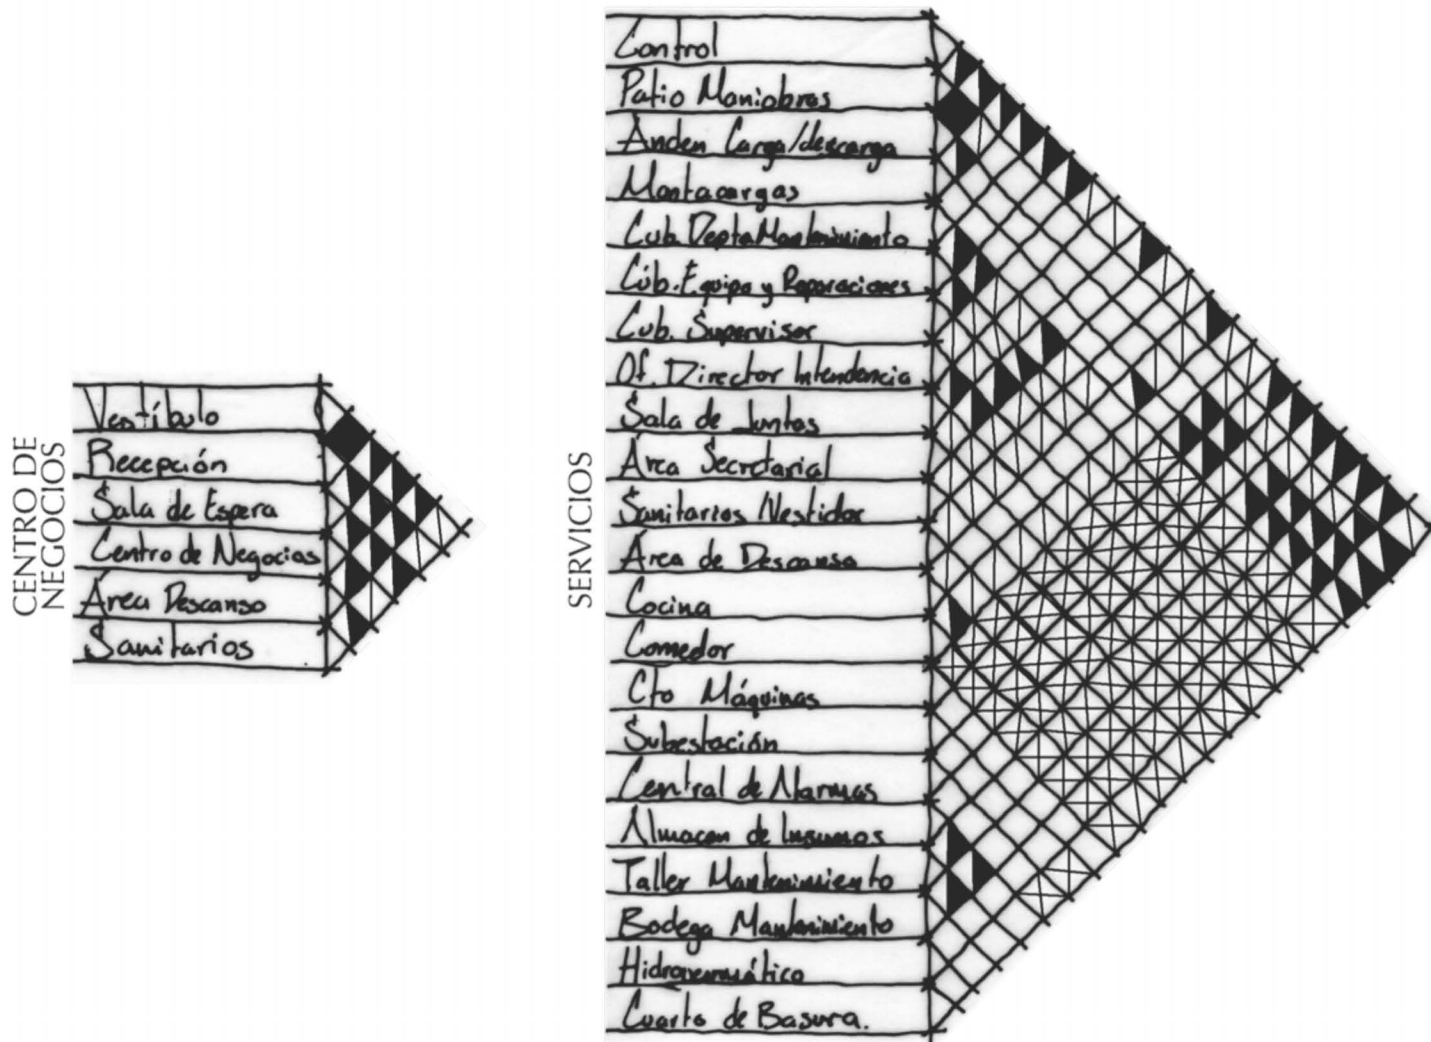 CENTRO DE
NEGOCIOS
Vestíbulo
Recepción
Sala de Espera
Centro de Negocios
Área Descanso
Sanitarios
SERVICIOS
Control
Patio Maniobras
Anden Carga/descarga
Montacargas
Cub. Depto Mantenimiento
Cúb. Equipo y Reparaciones
Cub. Supervisor
Of. Director Intendencia
Sala de Juntas
Área Secretarial
Sanitarios/Vestidor
Área de Descanso
Cocina
Comedor
Cto Máquinas
Subestación
Central de Alarmas
Almacen de Insumos
Taller Mantenimiento
Bodega Mantenimiento
Hidroneumático
Cuarto de Basura.